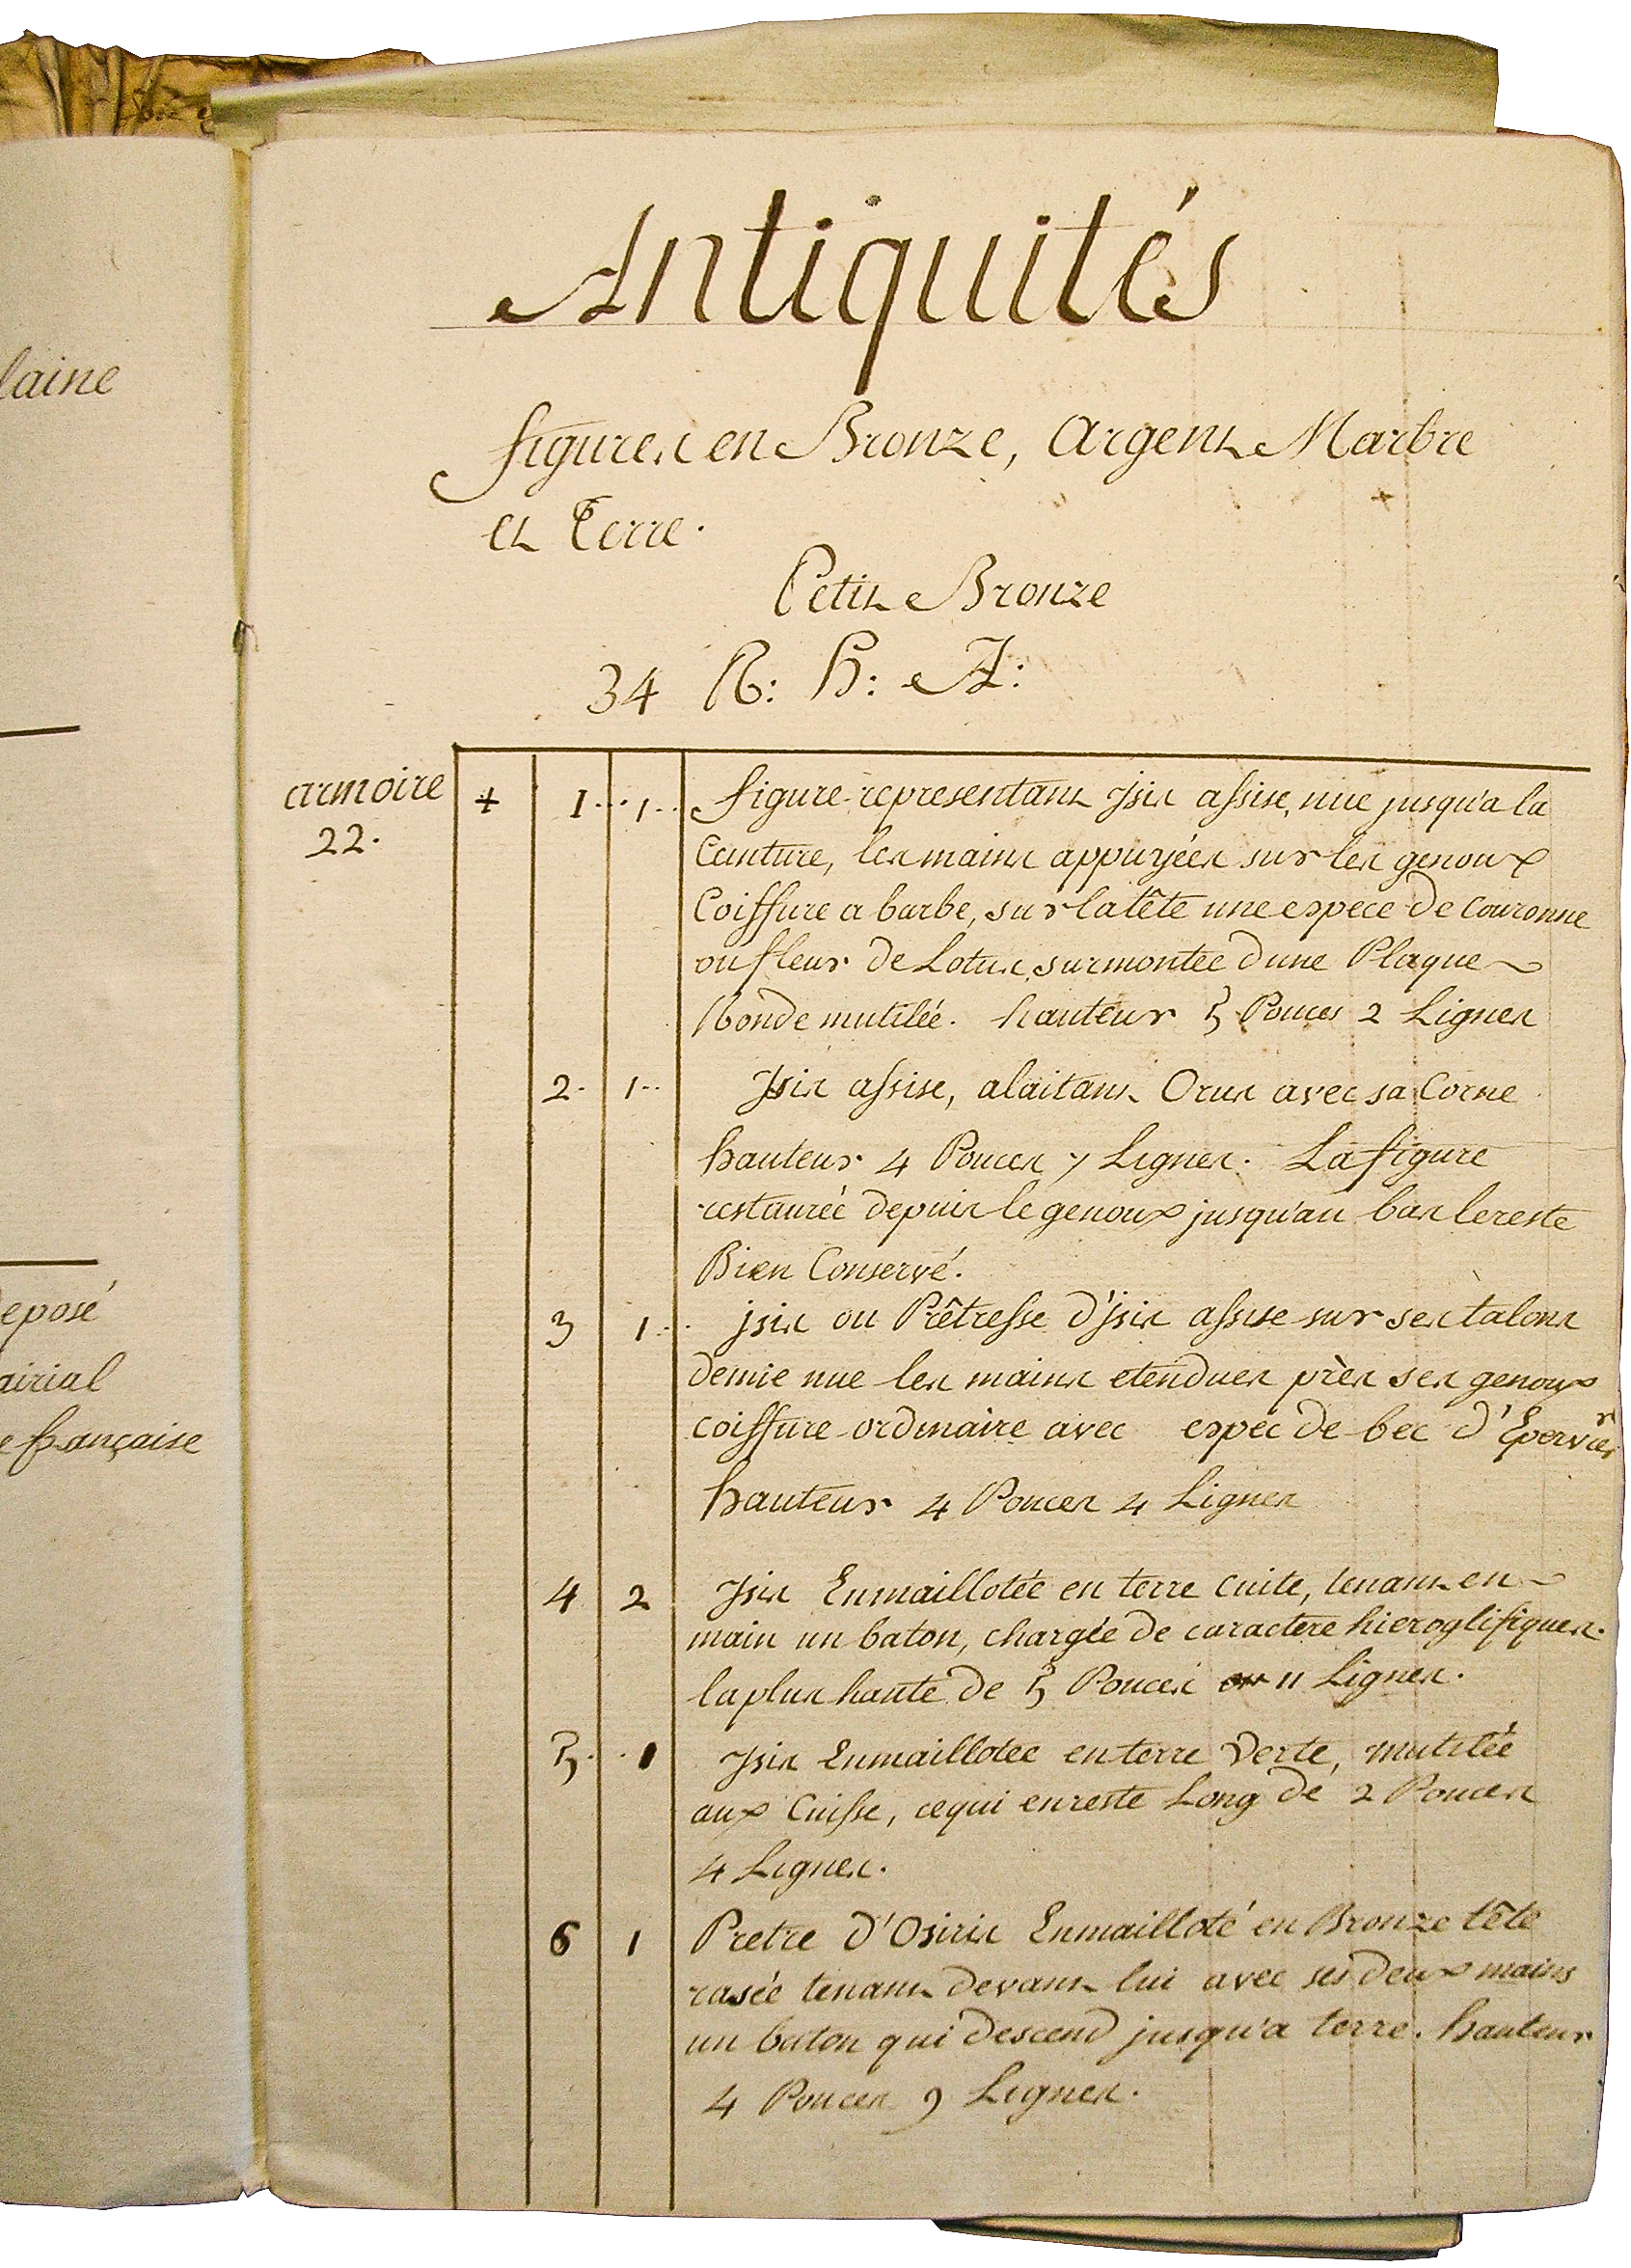 laine
eposé
airial
e française
Antiquités
figures en Bronze, Argent Marbre
et Terre.
Petit Bronze
34 R: H: A:
armoire
22.
+ 1 1 figure representant Isis assise, nue jusqu'a la
Ceinture, les mains appuyées sur les genoux
Coiffure a barbe, sur la tête une espece de couronne
ou fleur de Lotus, surmontée d'une Plaque
Ronde mutilée. hauteur 5 Pouces 2 Lignes
2. 1 Isis assise, alaitant Orus avec sa Corne
hauteur 4 Pouces 7 Lignes. La figure
restaurée depuis le genoux jusqu'au bas le reste
Bien Conservé.
3 1 isis ou Prêtresse d'isis assise sur ses talons
demie nue les mains etendues près ses genoux
coiffure ordinaire avec espec de bec d'Epervier
hauteur 4 Pouces 4 Lignes
4 2 Isis Enmaillotée en terre cuite, tenant en
main un baton, chargée de caractere hieroglifiques.
la plus haute de 5 Pouces 11 Lignes.
5. 1 Isis Enmaillotee en terre Verte, mutilée
aux Cuisse, ce qui en reste Long de 2 Pouces
4 Lignes.
6 1 Pretre d'Osiris Enmailloté en Bronze tête
rasée tenant devant lui avec ses deux mains
un baton qui descend jusqu'a terre. hauteur
4 Pouces 9 Lignes.